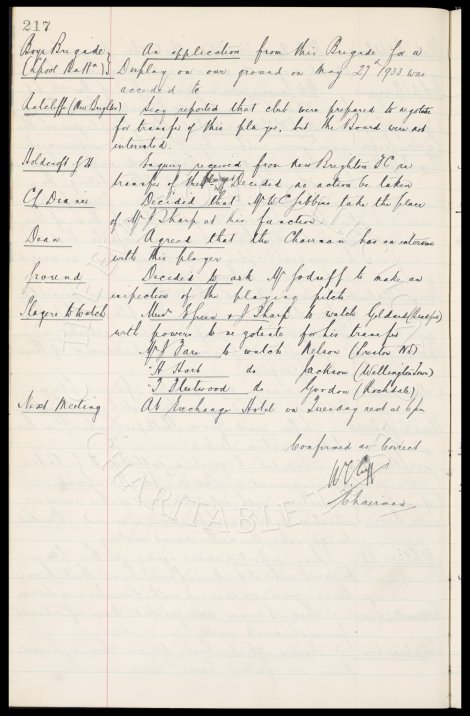 217
Boys Brigade An application from this Brigade for a
(L'pool Battn) Display on our ground on May 27th 1933 was
acceded to
Ratcliff (New Brighton) Secy reported that club were prepared to negotiate
for transfer of this player, but the Board were not
interested.
Holdcroft G H Inquiry received from New Brighton FC re
transfer of this player Decided no action be taken
CL Dinner Decided that Mr W C Gibbins take the place
of Mr J Sharp at his function.
Dean Agreed that the Chairman has an interview
with this player
Ground Decided to ask Mr to make an
inspection of the playing pitch.
Players to Watch Messrs Green & J Sharp to watch Geldard (Bradford)
with powers to negotiate for his transfer
Mr J Fare to watch Nelson (Preston NE)
" H Hart do Jackson (Wellington Town)
" T Fleetwood do Gordon (Rochdale)
Next Meeting At Exchange Hotel on Tuesday next at 6 pm
Confirmed as Correct
W C Cuff
Chairman.
CHARITABLE